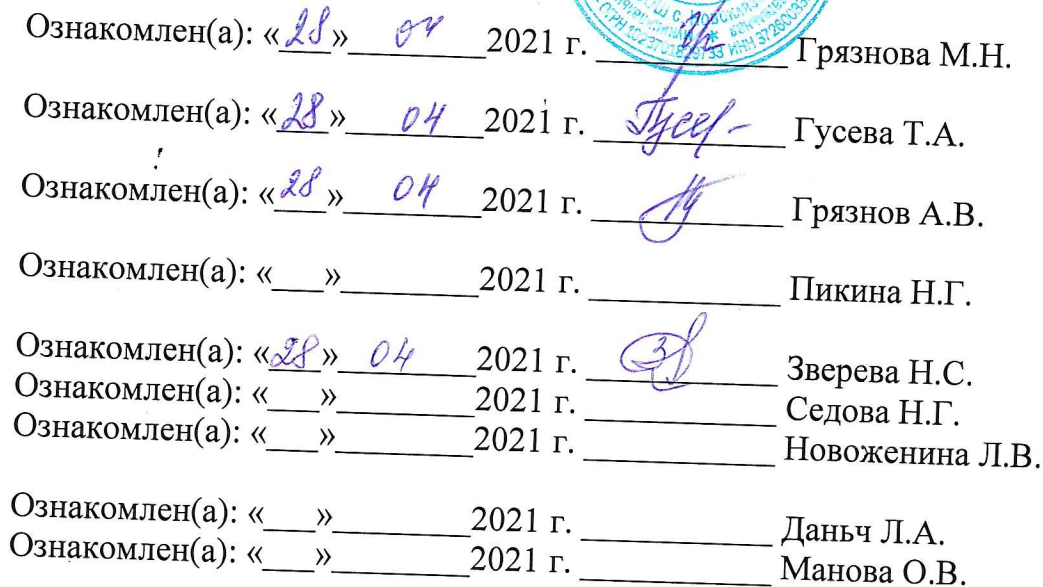 Ознакомлен(а): «28» 04 2021 г. ________ Грязнова М.Н.
Ознакомлен(а): «28» 04 2021 г. Гусев- Гусева Т.А.
Ознакомлен(а): «28» 04 2021 г. ________ Грязнов А.В.
Ознакомлен(а): «___»________2021 г. ___________ Пикина Н.Г.
Ознакомлен(а): «28» 04 2021 г. ________ Зверева Н.С.
Ознакомлен(а): «___»________2021 г. ___________ Седова Н.Г.
Ознакомлен(а): «___»________2021 г. ___________ Новоженина Л.В.
Ознакомлен(а): «___»________2021 г. ___________ Даньч Л.А.
Ознакомлен(а): «___»________2021 г. ___________ Манова О.В.